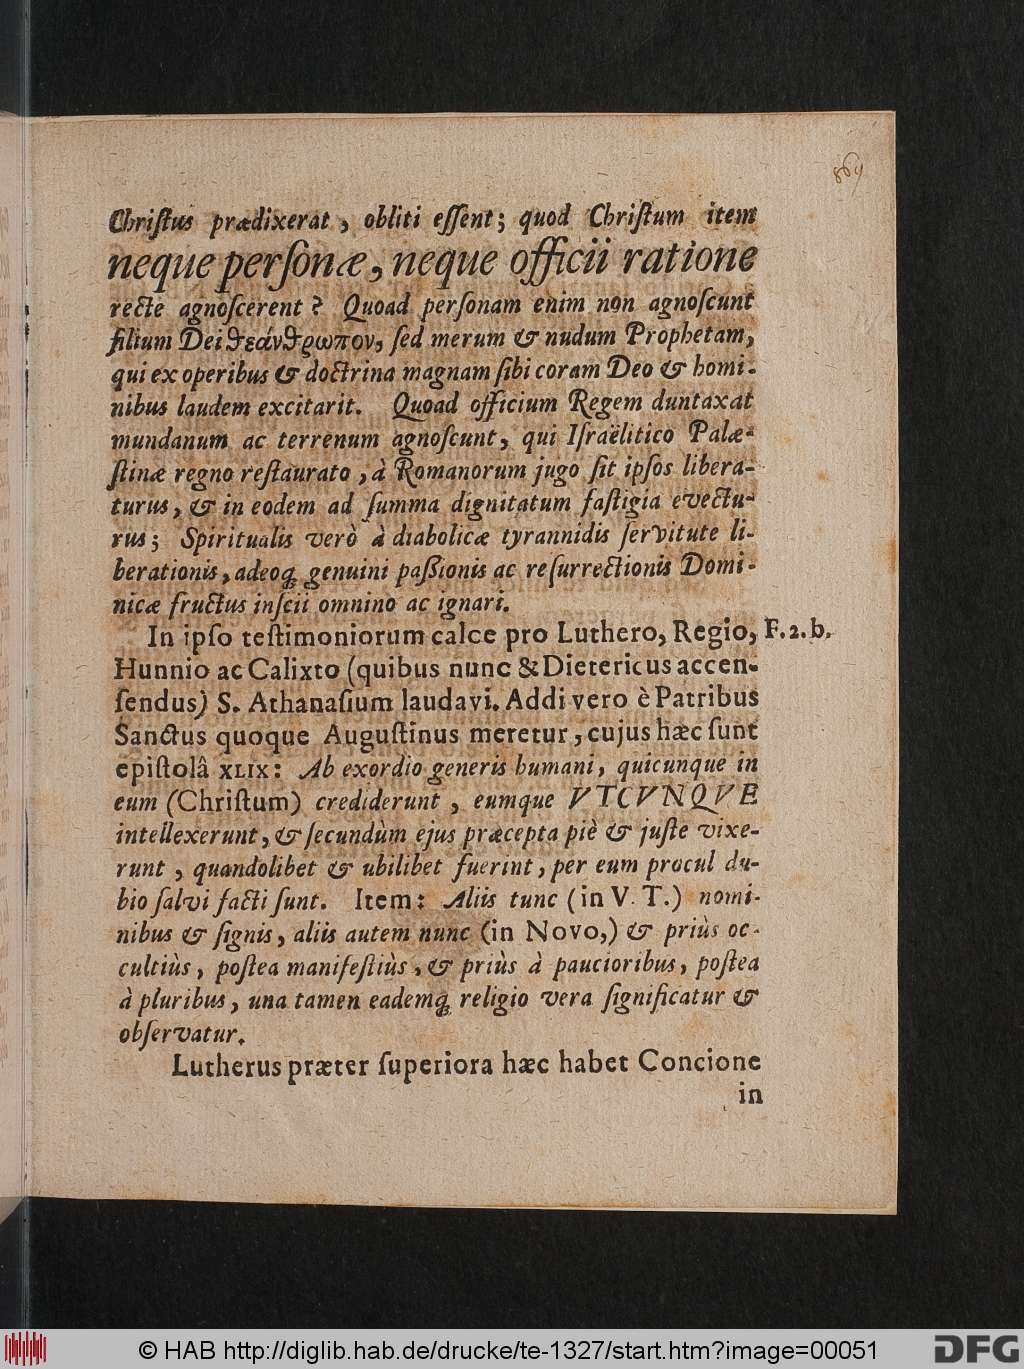 869
Chriſtus prædixerat, obliti eſſent; quod Chriſtum item
neque perſonæ, neque officii ratione
recte agnoſcerent? Quoad perſonam enim non agnoſcunt
filium Dei ϑεάνϑρωπον, ſed merum & nudum Prophetam,
qui ex operibus & doctrina magnam ſibi coram Deo & homi-
nibus laudem excitarit. Quoad officium Regem duntaxat
mundanum ac terrenum agnoſcunt, qui Iſraëlitico Palæ-
ſtinæ regno reſtaurato, à Romanorum jugo ſit ipſos libera-
turus, & in eodem ad ſumma dignitatum faſtigia evectu-
rus; Spiritualis verò à diabolicæ tyrannidis ſervitute li-
berationis, adeoq; genuini paſſionis ac reſurrectionis Domi-
nicæ fructus inſcii omnino ac ignari.
In ipſo teſtimoniorum calce pro Luthero, Regio, F. 2. b.
Hunnio ac Calixto (quibus nunc & Dietericus accen-
ſendus) S. Athanaſium laudavi. Addi vero è Patribus
Sanctus quoque Auguſtinus meretur, cujus hæc ſunt
epiſtolâ XLIX: Ab exordio generis humani, quicunque in
eum (Chriſtum) crediderunt, eumque VTCVNQVE
intellexerunt, & ſecundùm ejus præcepta piè & juſte vixe-
runt, quandolibet & ubilibet fuerint, per eum procul du-
bio ſalvi facti ſunt. Item: Aliis tunc (in V. T.) nomi-
nibus & ſignis, aliis autem nunc (in Novo,) & priùs oc-
cultiùs, poſtea manifeſtiùs, & priùs à paucioribus, poſtea
à pluribus, una tamen eademq; religio vera ſignificatur &
obſervatur.
Lutherus præter ſuperiora hæc habet Concione
in
© HAB http://diglib.hab.de/drucke/te-1327/start.htm?image=00051
DFG